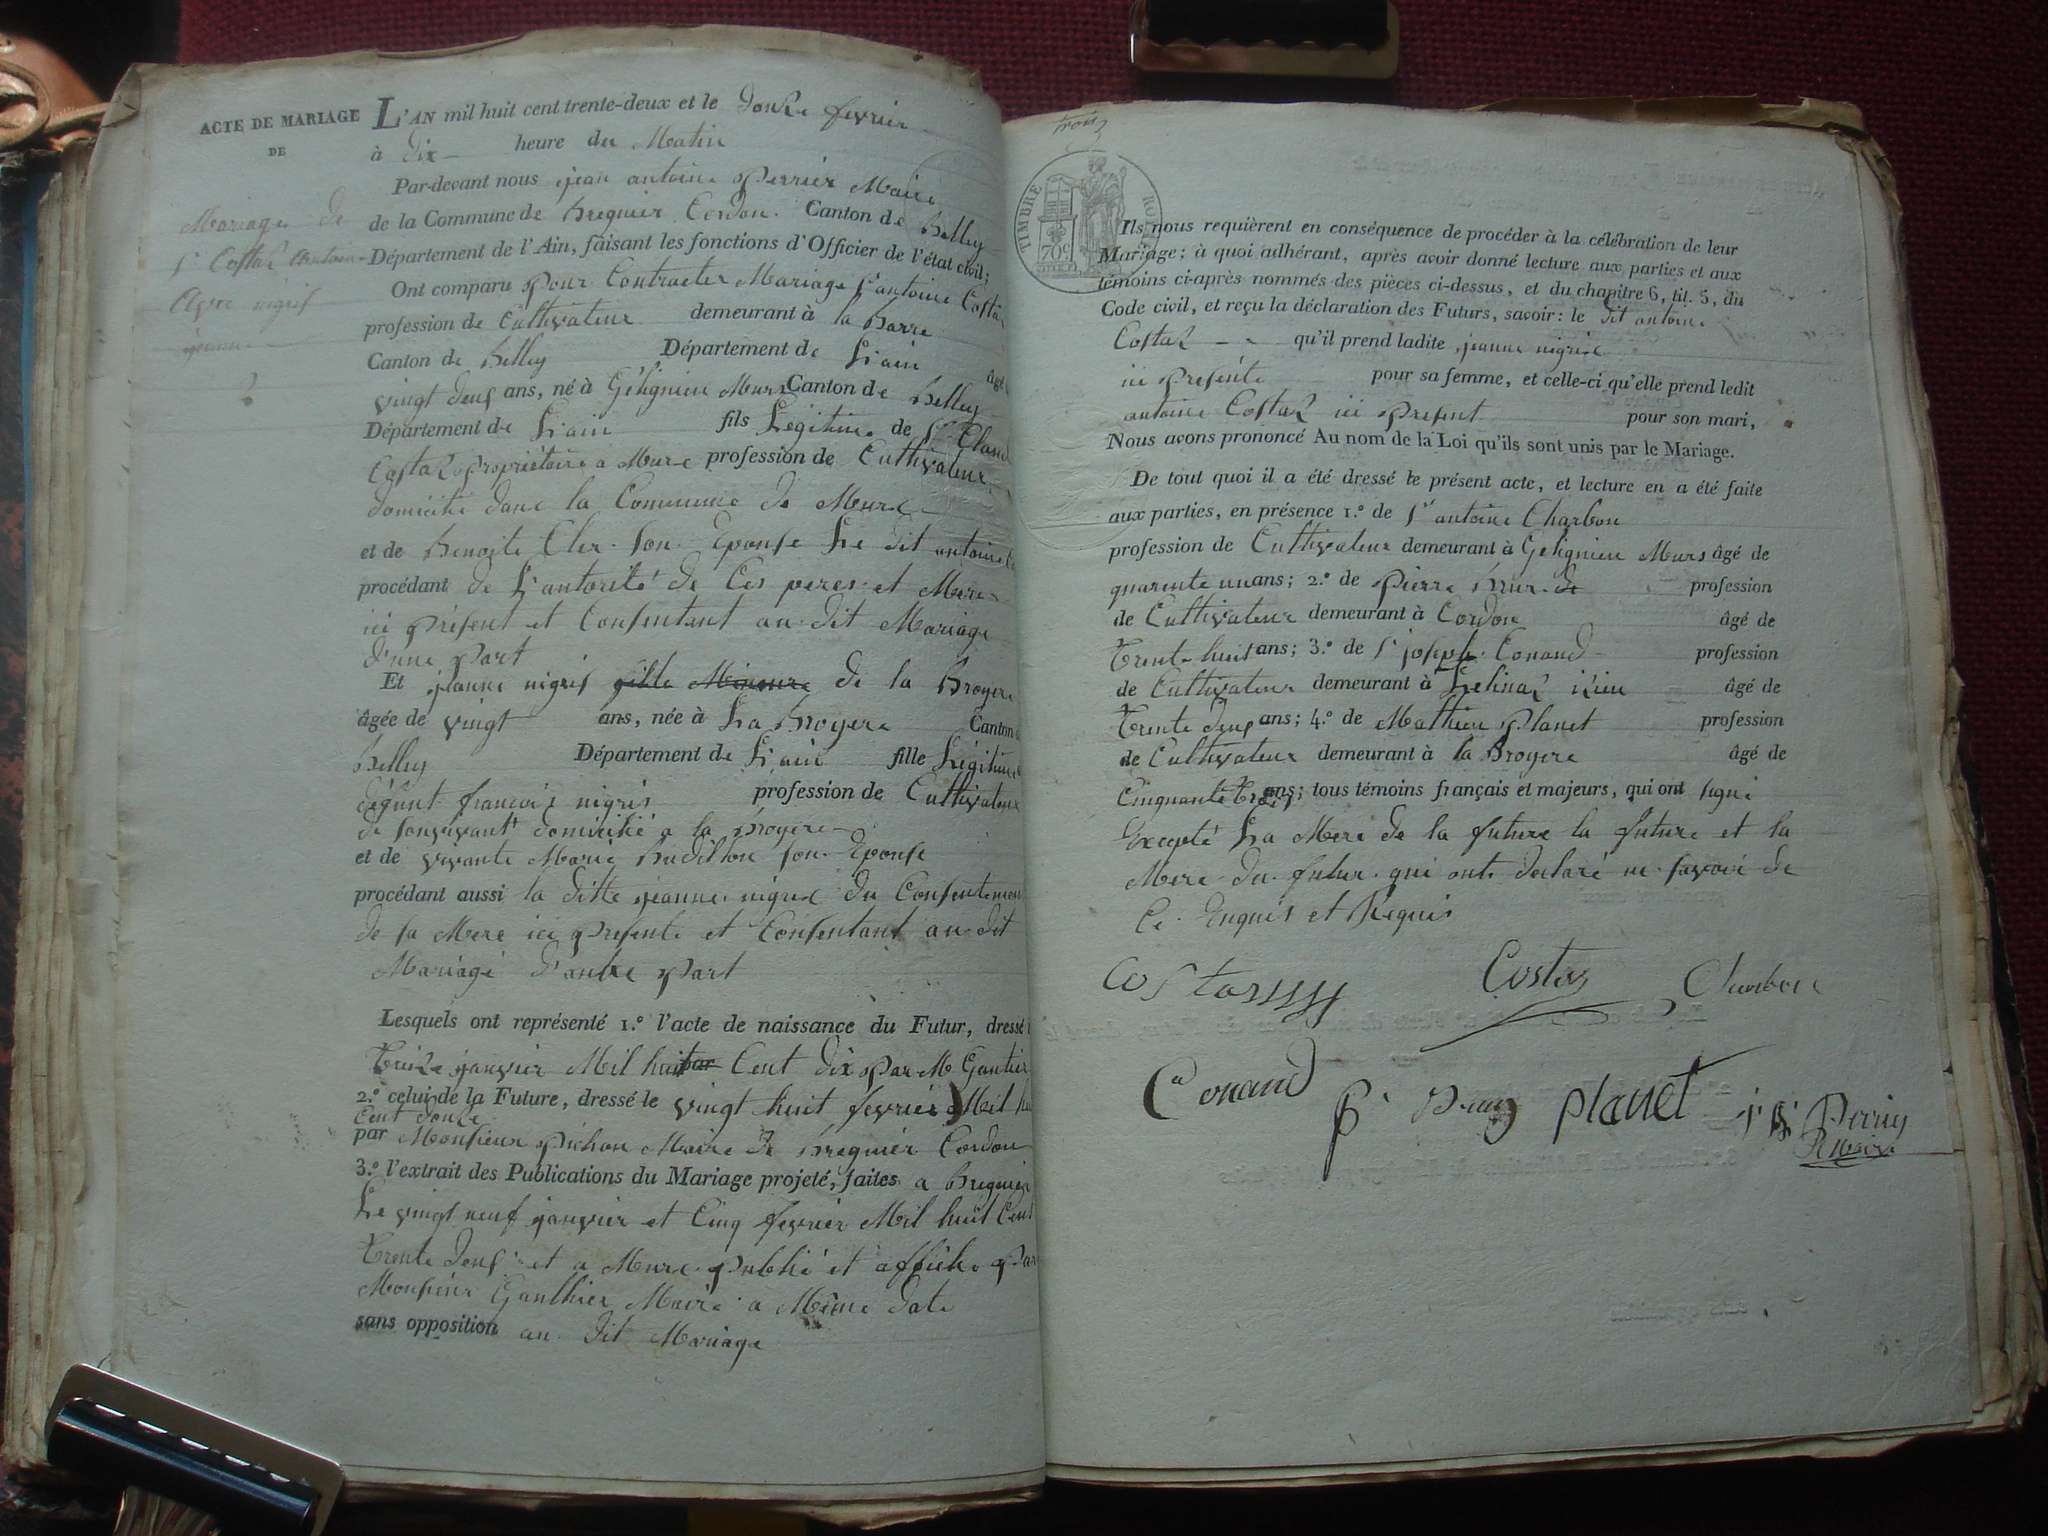 ACTE DE MARIAGE
DE
Mariage de
Sr Costaz antoine
Avec nigris
jeanne
L'AN mil huit cent trente-deux et le douze fevrier
à dix heure du Matin
Par-devant nous jean antoine Perrier Maire
de la Commune de Bregnier Cordon. Canton de Belley
Département de l'Ain, faisant les fonctions d'Officier de l'état civil;
Ont comparu pour Contracter Mariage Sr antoine Costaz
profession de Cultivateur demeurant à la Barre
Canton de Belley Département de L'ain âgé
vingt deux ans, né à Gélignieu Murs Canton de Belley
Département de L'ain fils Légitime de Sr Claude
Costaz propriétaire a Murs profession de Cultivateur
domicilié dans la Commune de Murs
et de Benoite Cler son Epouse Le dit antoine
procédant de L'autorité de Ces peres et Mere
ici présent et Consentant au dit Mariage
d'une part
Et jeanne nigris fille Mineure de la Broyere
âgée de vingt ans, née à La Broyere Canton
Belley Département de L'ain fille Légitime
défunt francois nigris profession de Cultivateur
de sonvivant domicilié a la Broyere
et de vivante Marie Budillon son Epouse
procédant aussi la ditte jeanne nigris du Consentement
de sa Mere ici presente et Consentant au dit
Mariage d'autre part
Lesquels ont représenté 1.º l'acte de naissance du Futur, dressé
treize janvier Mil huit par Cent dix par Mr Gantier
2.º celui de la Future, dressé le vingt huit fevrier Mil hui
Cent douze
par Monsieur Pichon Maire de Bregnier Cordon
3.º l'extrait des Publications du Mariage projeté, faites a Bregnier
Le vingt neuf janvier et Cinq fevrier Mil huit Cent
trente deux et a Murs publié et affiché par
Monsieur Gauthier Maire a Même date
sans opposition au dit Mariage
trois
TIMBRE ROYAL
70c
Ils nous requièrent en conséquence de procéder à la célébration de leur
Mariage; à quoi adhérant, après avoir donné lecture aux parties et aux
témoins ci-après nommés des pièces ci-dessus, et du chapitre 6, tit. 5, du
Code civil, et reçu la déclaration des Futurs, savoir: le dit antoine
Costaz qu'il prend ladite jeanne nigris
ici Présente pour sa femme, et celle-ci qu'elle prend ledit
antoine Costaz ici Present pour son mari,
Nous avons prononcé Au nom de la Loi qu'ils sont unis par le Mariage.
De tout quoi il a été dressé le présent acte, et lecture en a été faite
aux parties, en présence 1.º de Sr antoine Charbon
profession de Cultivateur demeurant à Gelignieu Murs âgé de
quarente un ans; 2.º de Pierre profession
de Cultivateur demeurant à Cordon âgé de
trent-huit ans; 3.º de Sr joseph Conand profession
de Cultivateur demeurant à âgé de
trente deux ans; 4.º de Mathieu Planet profession
de Cultivateur demeurant à la Broyere âgé de
Cinquante trois ans; tous témoins français et majeurs, qui ont signé
Excepté La Mere de la future la future et la
Mere du futur qui ont declaré ne savoir de
Ce Enquis et Requis
Costa
Costaz
Charbon
Conand
planet
Perrier
Maire